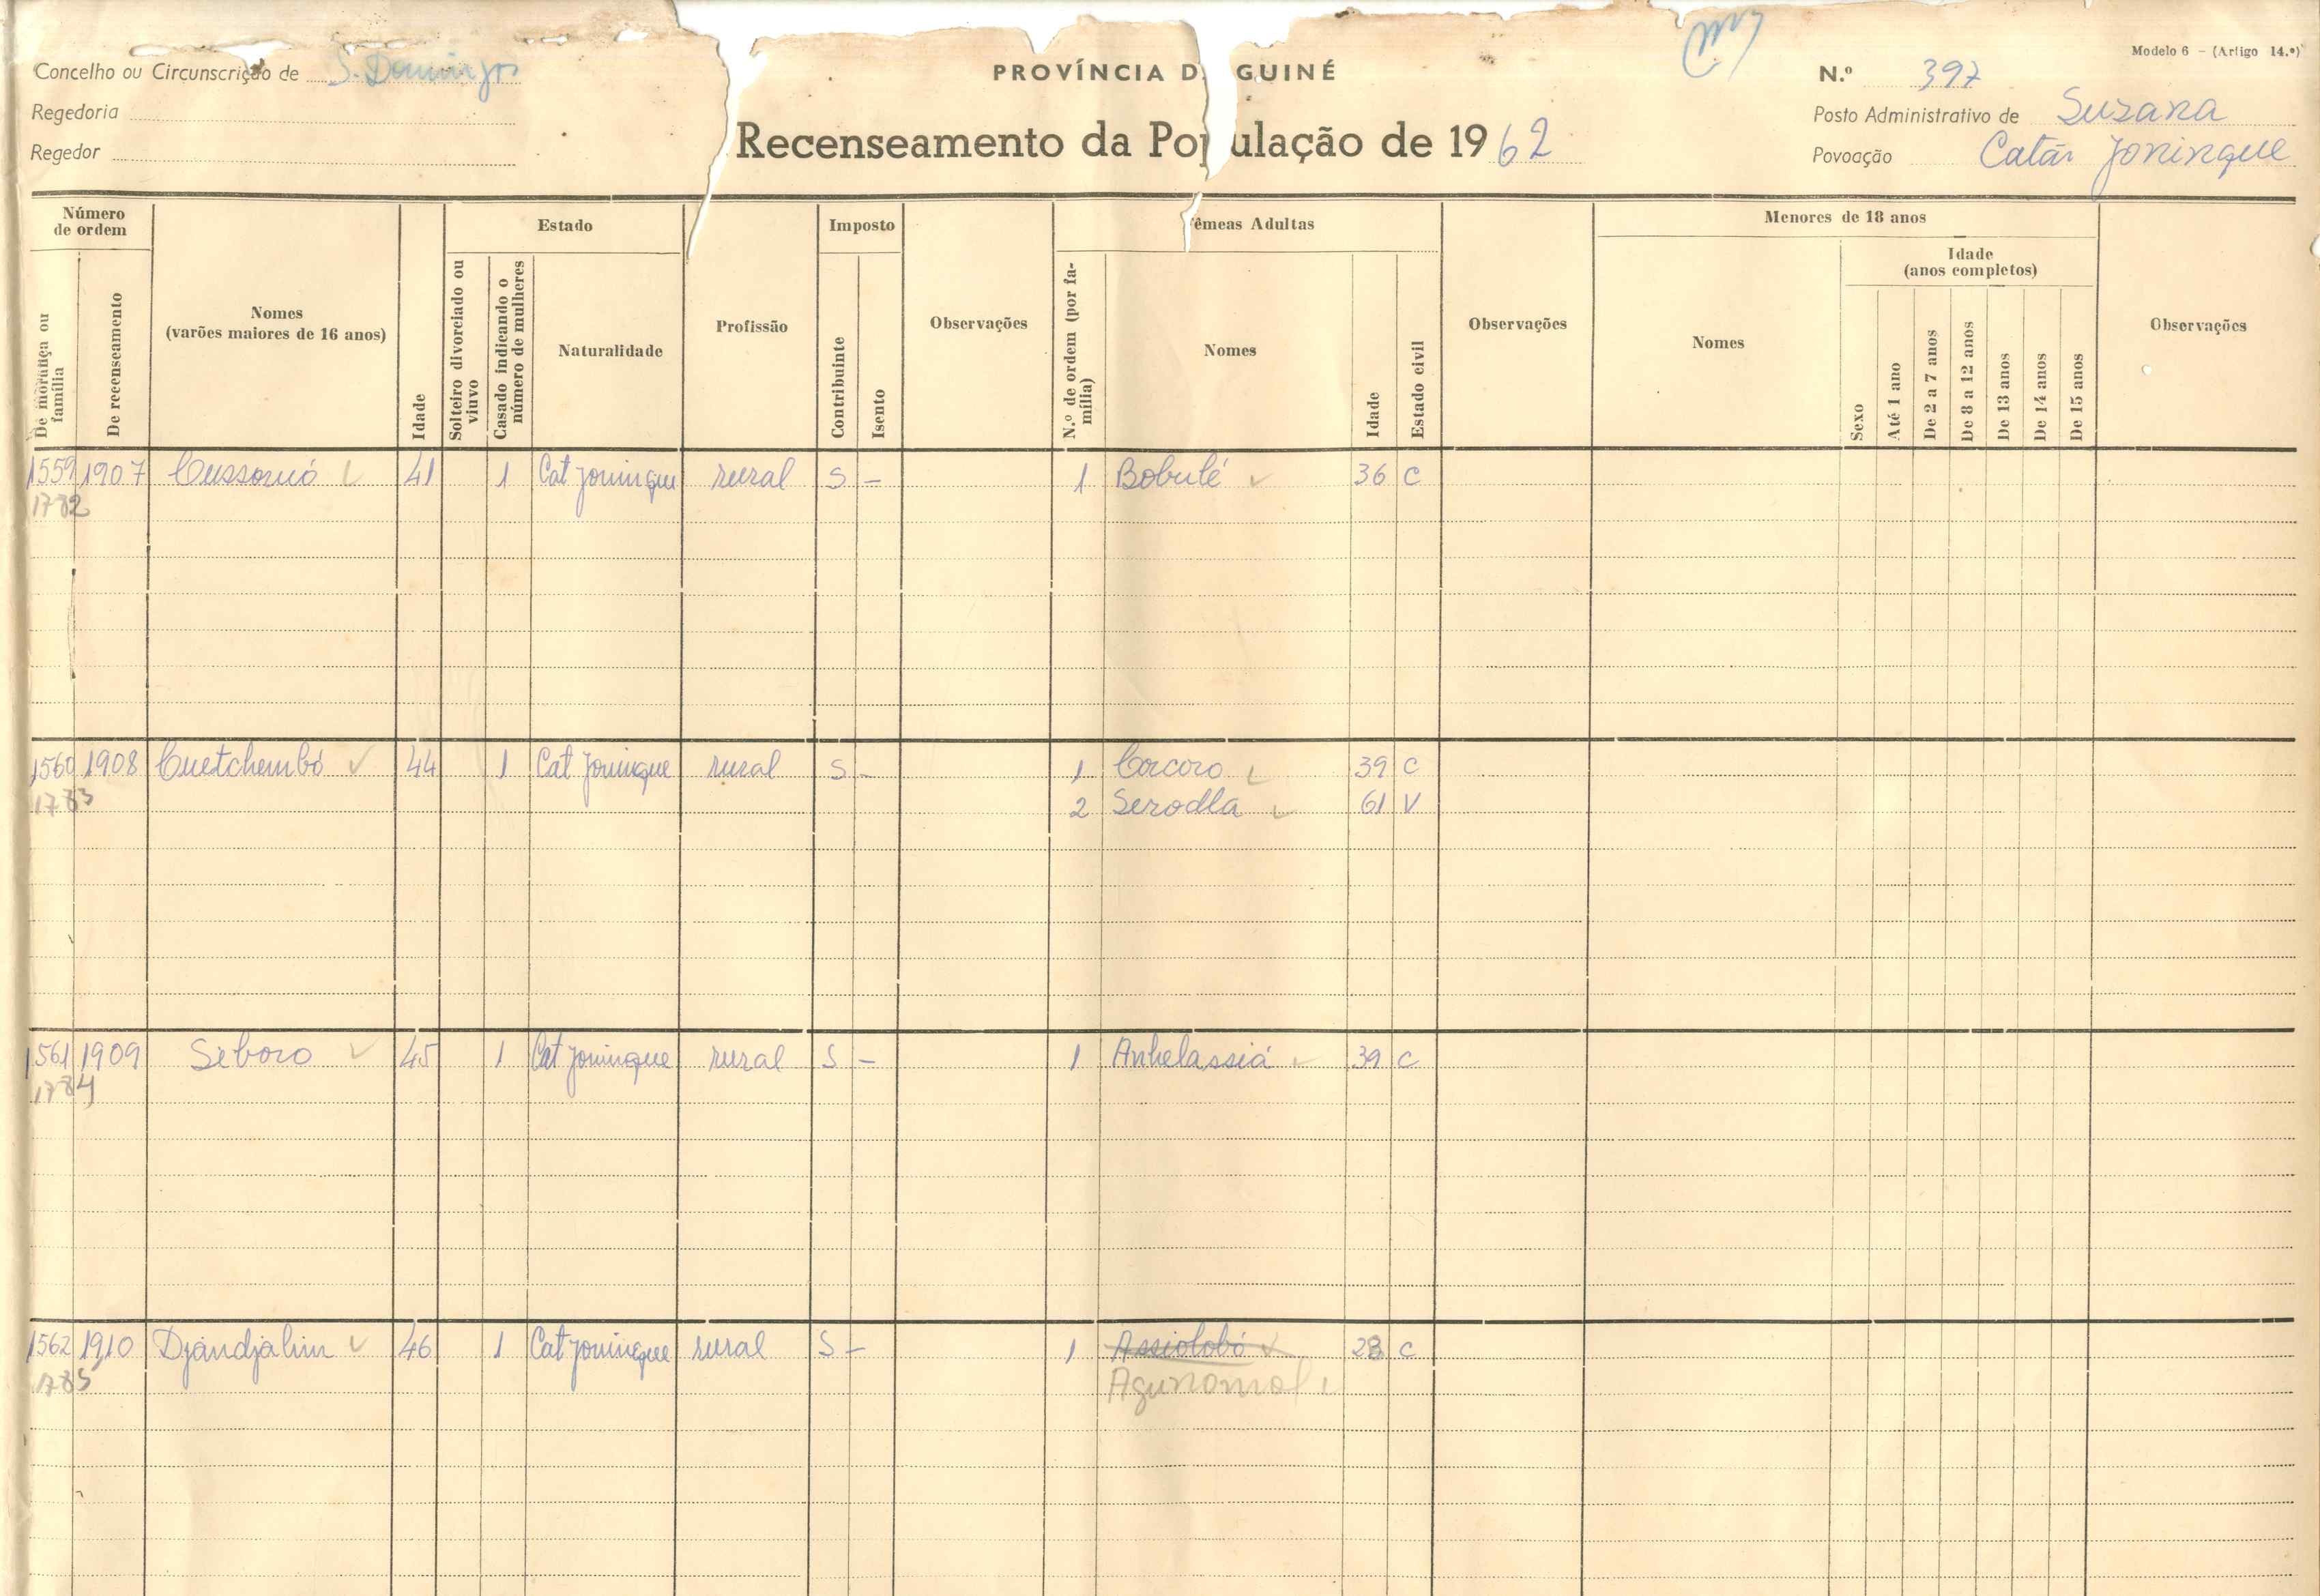 Modelo 6 - (Artigo 14.º)
Concelho ou Circunscrição de S. Domingos
PROVÍNCIA D GUINÉ
N.º 397
Regedoria
Posto Administrativo de Suzana
Regedor
Recenseamento da Pop ulação de 1962
Povoação Catão Joninque
Número de ordem
Estado
Imposto
êmeas Adultas
Menores de 18 anos
De morança ou família
De recenseamento
Nomes
(varões maiores de 16 anos)
Idade
Solteiro divorciado ou viuvo
Casado indicando o número de mulheres
Naturalidade
Profissão
Contribuinte
Isento
Observações
N.º de ordem (por família)
Nomes
Idade
Estado civil
Observações
Nomes
Sexo
Idade
(anos completos)
Até 1 ano
De 2 a 7 anos
De 8 a 12 anos
De 13 anos
De 14 anos
De 15 anos
Observações
1559 1907 Cussomó 41 1 Cat Joninque rural S - 1 Bobulé 36 C
1782
1560 1908 Cuetchembó 44 1 Cat Joninque rural S - 1 Corcoro 39 C
1783 2 Serodla 61 V
1561 1909 Seboro 45 1 Cat Joninque rural S - 1 Anhelassiá 39 C
1784
1562 1910 Djandjalim 46 1 Cat Joninque rural S - 1 Assiolobó 28 C
1785 Agunomol